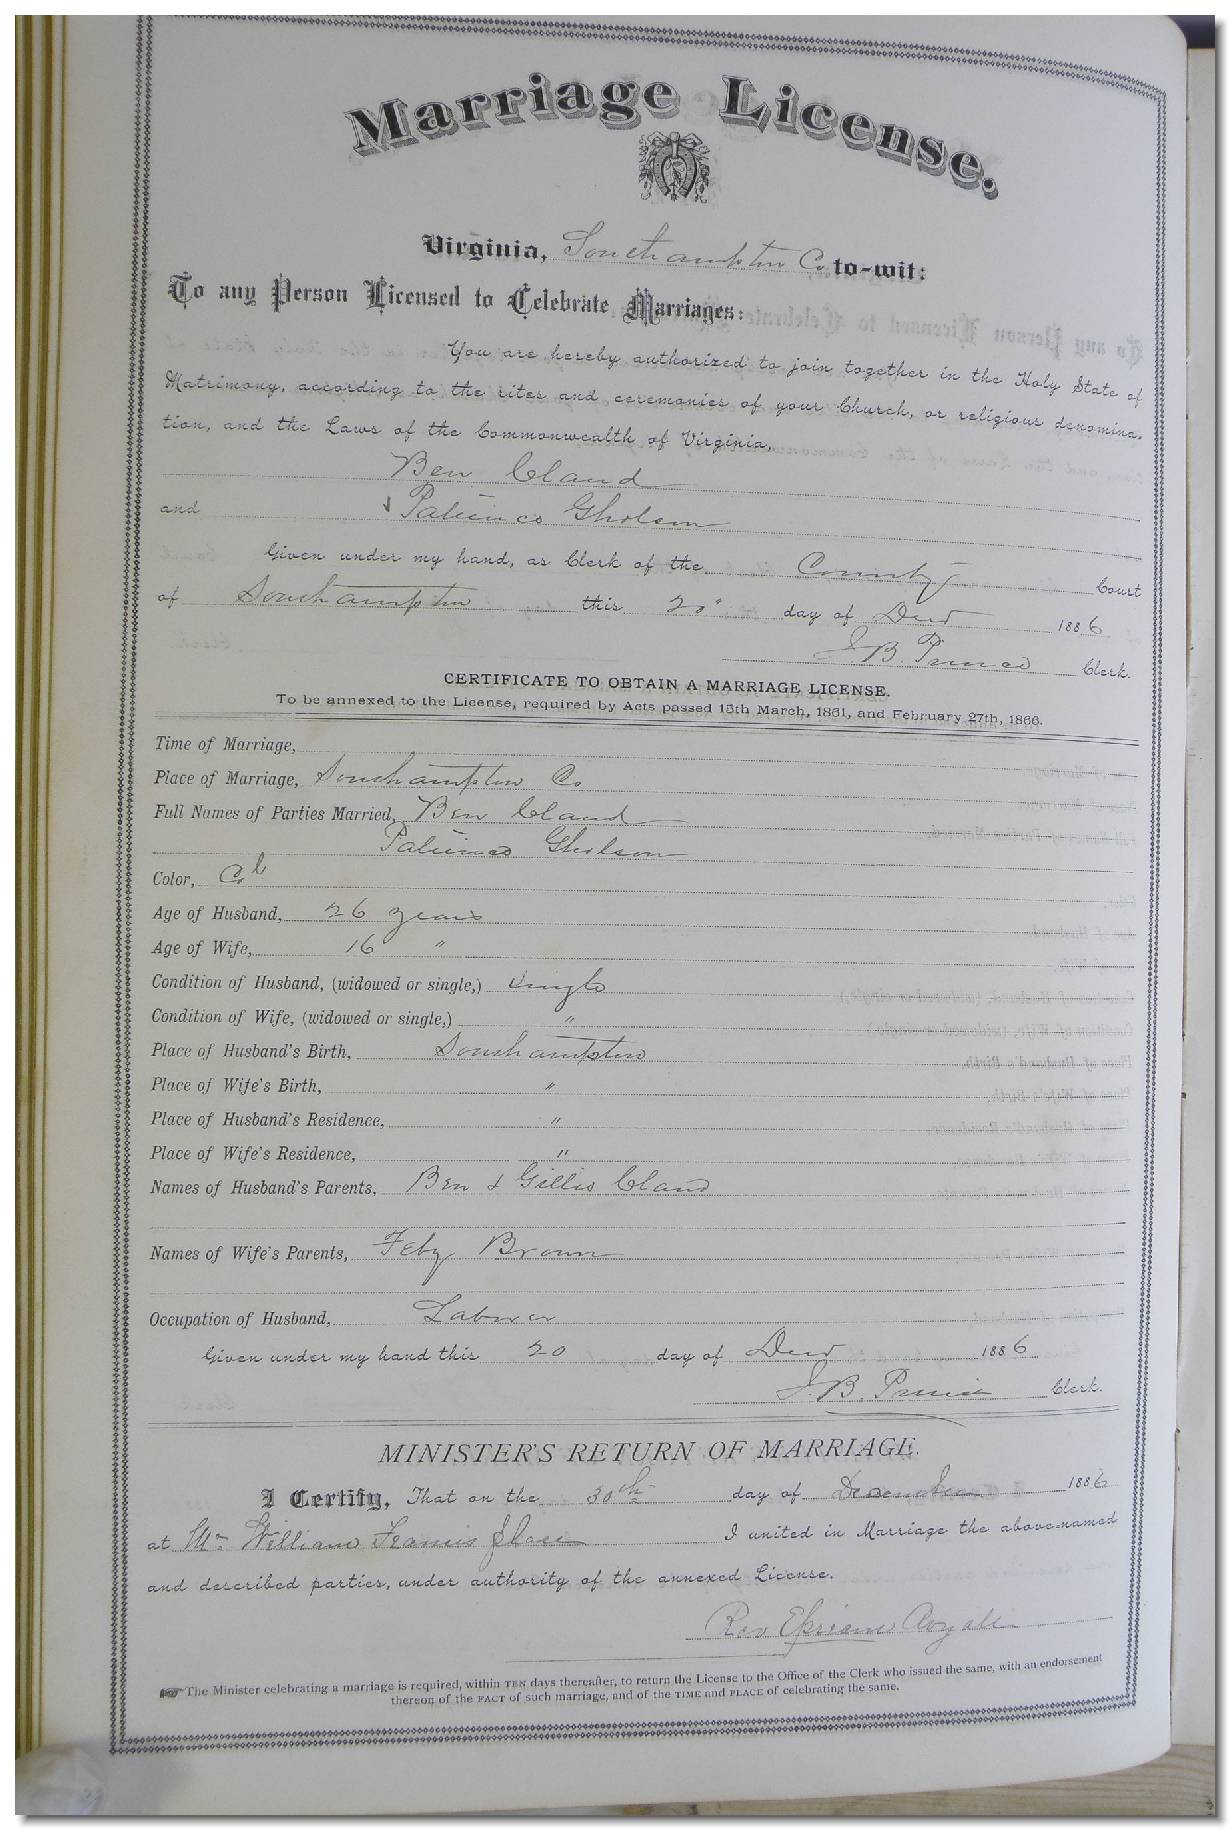 Marriage License.
Virginia, Southampton Co to-wit:
To any Person Licensed to Celebrate Marriages:
You are hereby authorized to join together in the Holy State of
Matrimony, according to the rites and ceremonies of your Church, or religious denomina-
tion, and the Laws of the Commonwealth of Virginia,
Ben Claud
and Patience Gholson
Given under my hand, as Clerk of the County Court
of Southampton this 20" day of Decr 1886
J B Prince Clerk.
CERTIFICATE TO OBTAIN A MARRIAGE LICENSE.
To be annexed to the License, required by Acts passed 15th March, 1861, and February 27th, 1866.
Time of Marriage,
Place of Marriage, Southampton Co
Full Names of Parties Married, Ben Claud
Patience Gholson
Color, Col
Age of Husband, 26 years
Age of Wife, 16 "
Condition of Husband, (widowed or single,) single
Condition of Wife, (widowed or single,) "
Place of Husband's Birth, Southampton
Place of Wife's Birth, "
Place of Husband's Residence, "
Place of Wife's Residence, "
Names of Husband's Parents, Ben & Gillis Claud
Names of Wife's Parents, Feby Brown
Occupation of Husband, Laborer
Given under my hand this 20 day of Decr 1886
J B. Prince Clerk.
MINISTER'S RETURN OF MARRIAGE.
I Certify, That on the 30th day of December 1886
at Mr William Francis place I united in Marriage the above-named
and described parties, under authority of the annexed License.
Rev Epriam
The Minister celebrating a marriage is required, within TEN days thereafter, to return the License to the Office of the Clerk who issued the same, with an endorsement
thereon of the FACT of such marriage, and of the TIME and PLACE of celebrating the same.